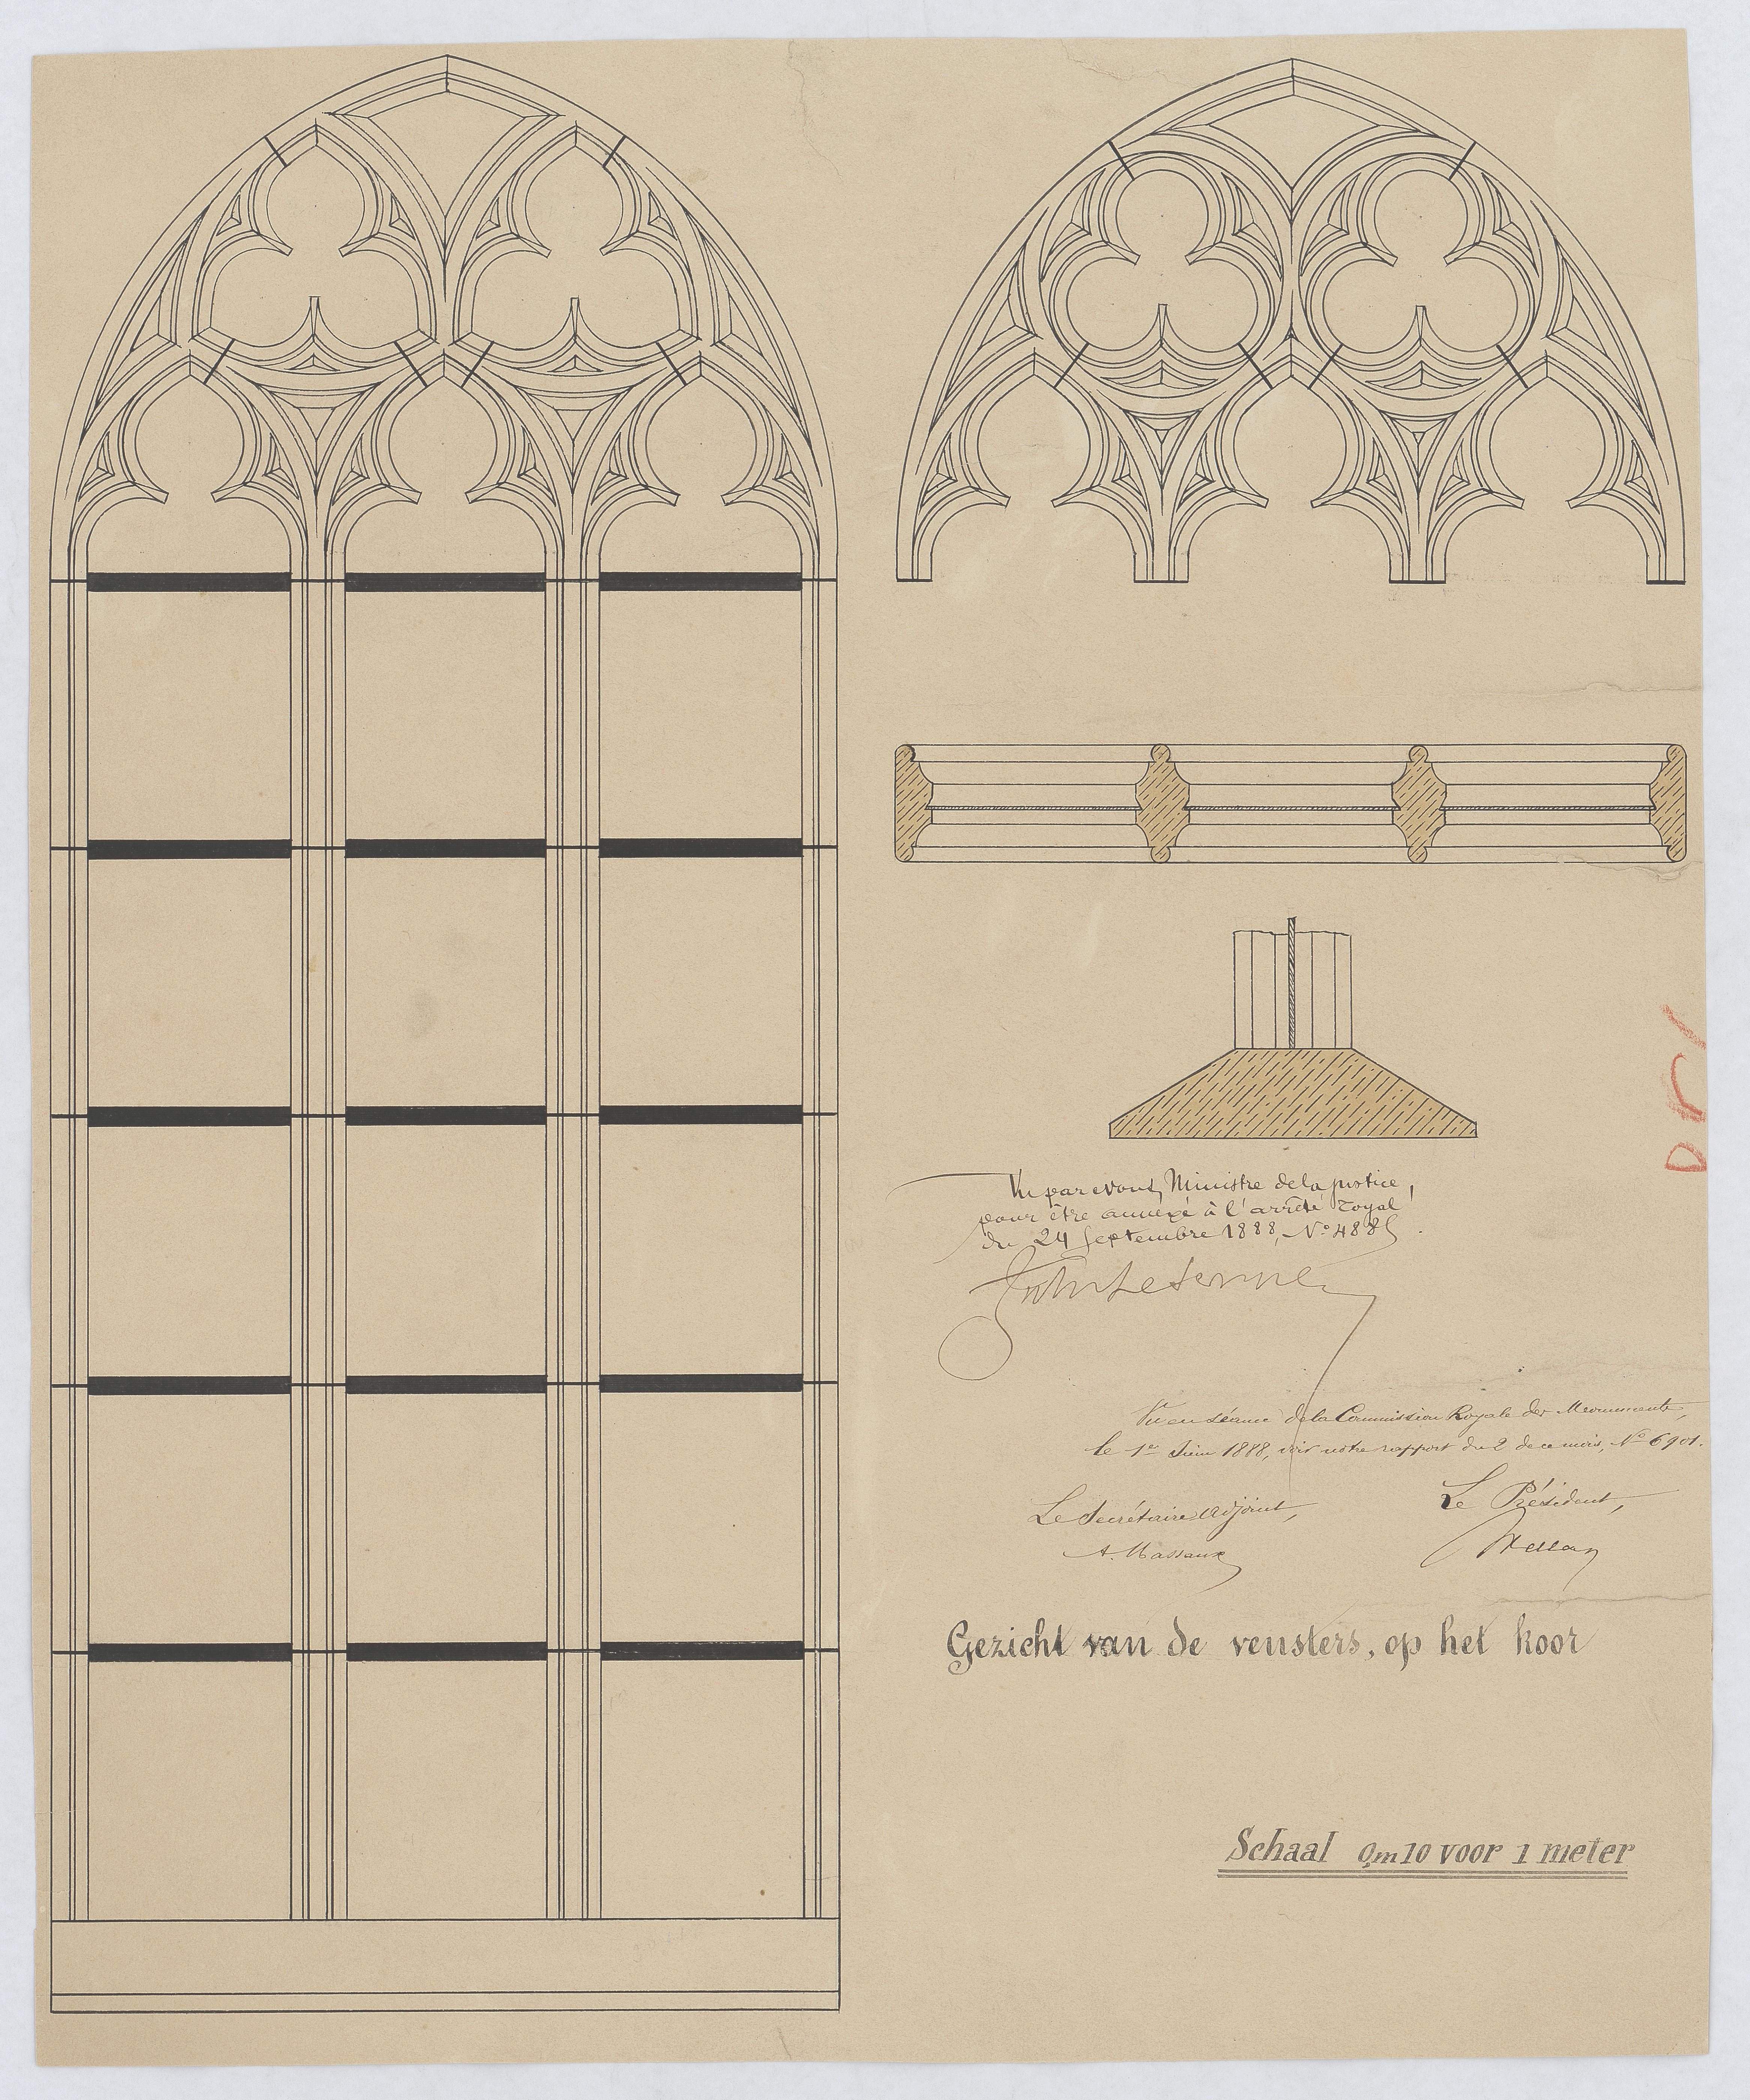 Vu par nous, Ministre de la justice,
pour être annexé à l'arrêté royal
du 24 Septembre 1888, N° 4885
Vu en séance de la Commission Royale des Monuments,
le 1er Juin 1888, voir notre rapport du 2 de ce mois, N° 6901.
Le Secrétaire Adjoint,
A. Massaux
Le Président,
Wellens
Gezicht van de vensters, op het koor
Schaal 0,m10 voor 1 meter